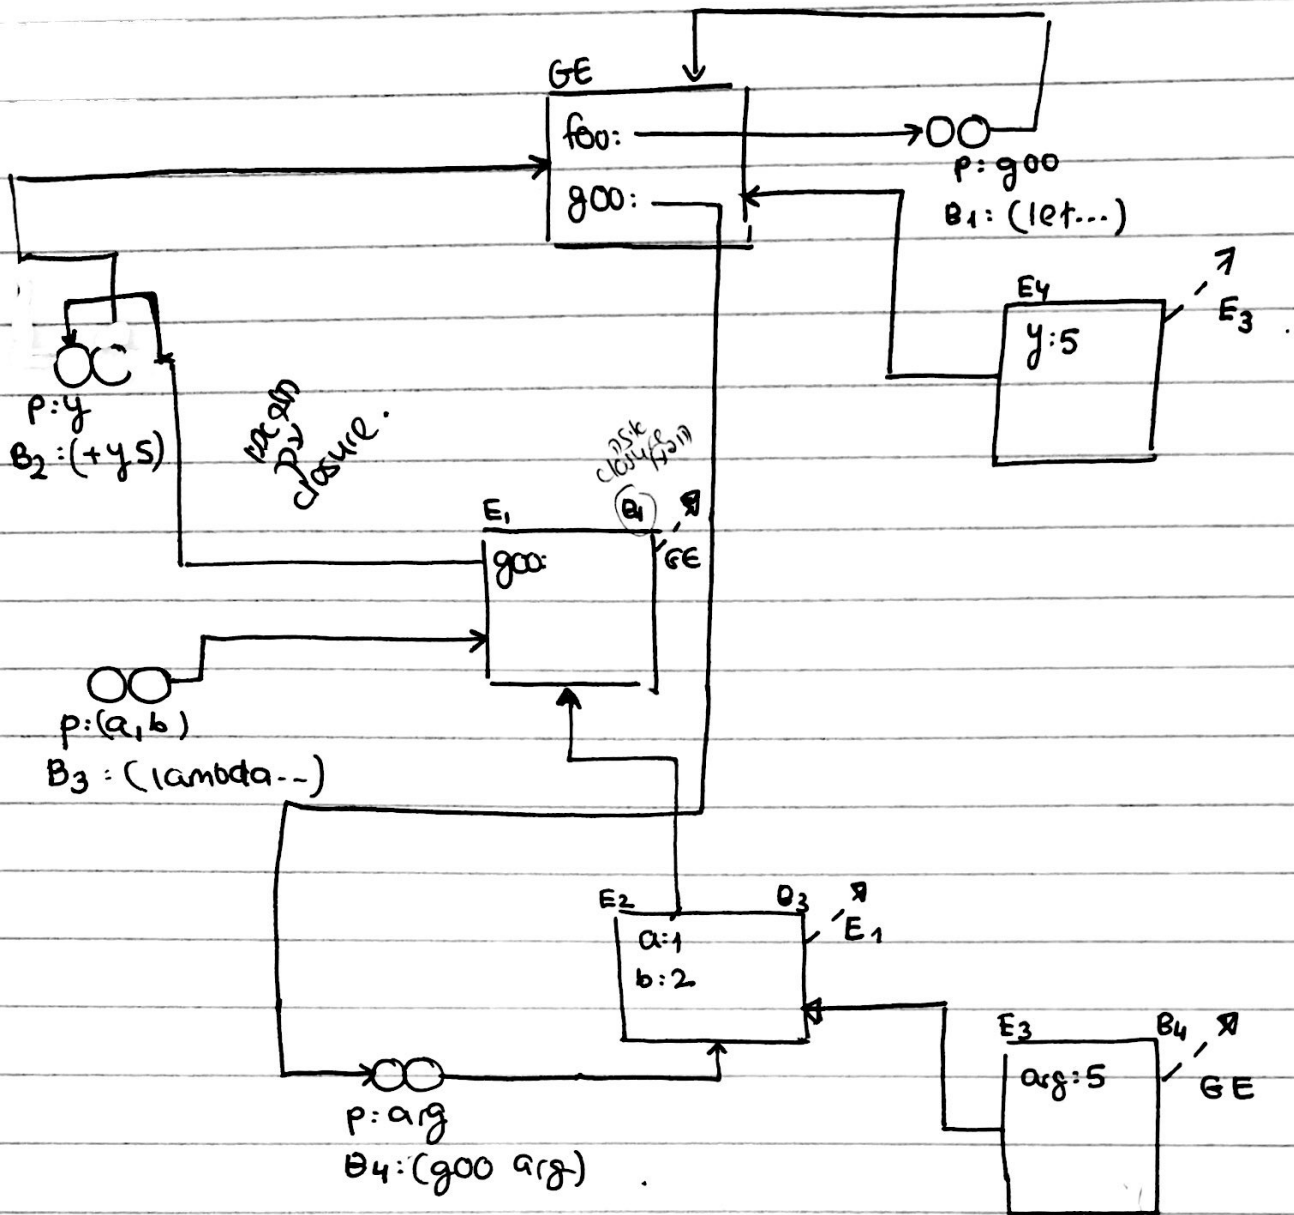 GE
foo:
goo:
p: goo
B1: (let...)
E4
E3
y:5
p:y
B2:(+y5)
closure.
closure
E1
B1
GE
goo:
p:(a,b)
B3:(lambda--)
E2
B3
E1
a:1
b:2
E3
B4
GE
arg:5
p:arg
B4:(goo arg)